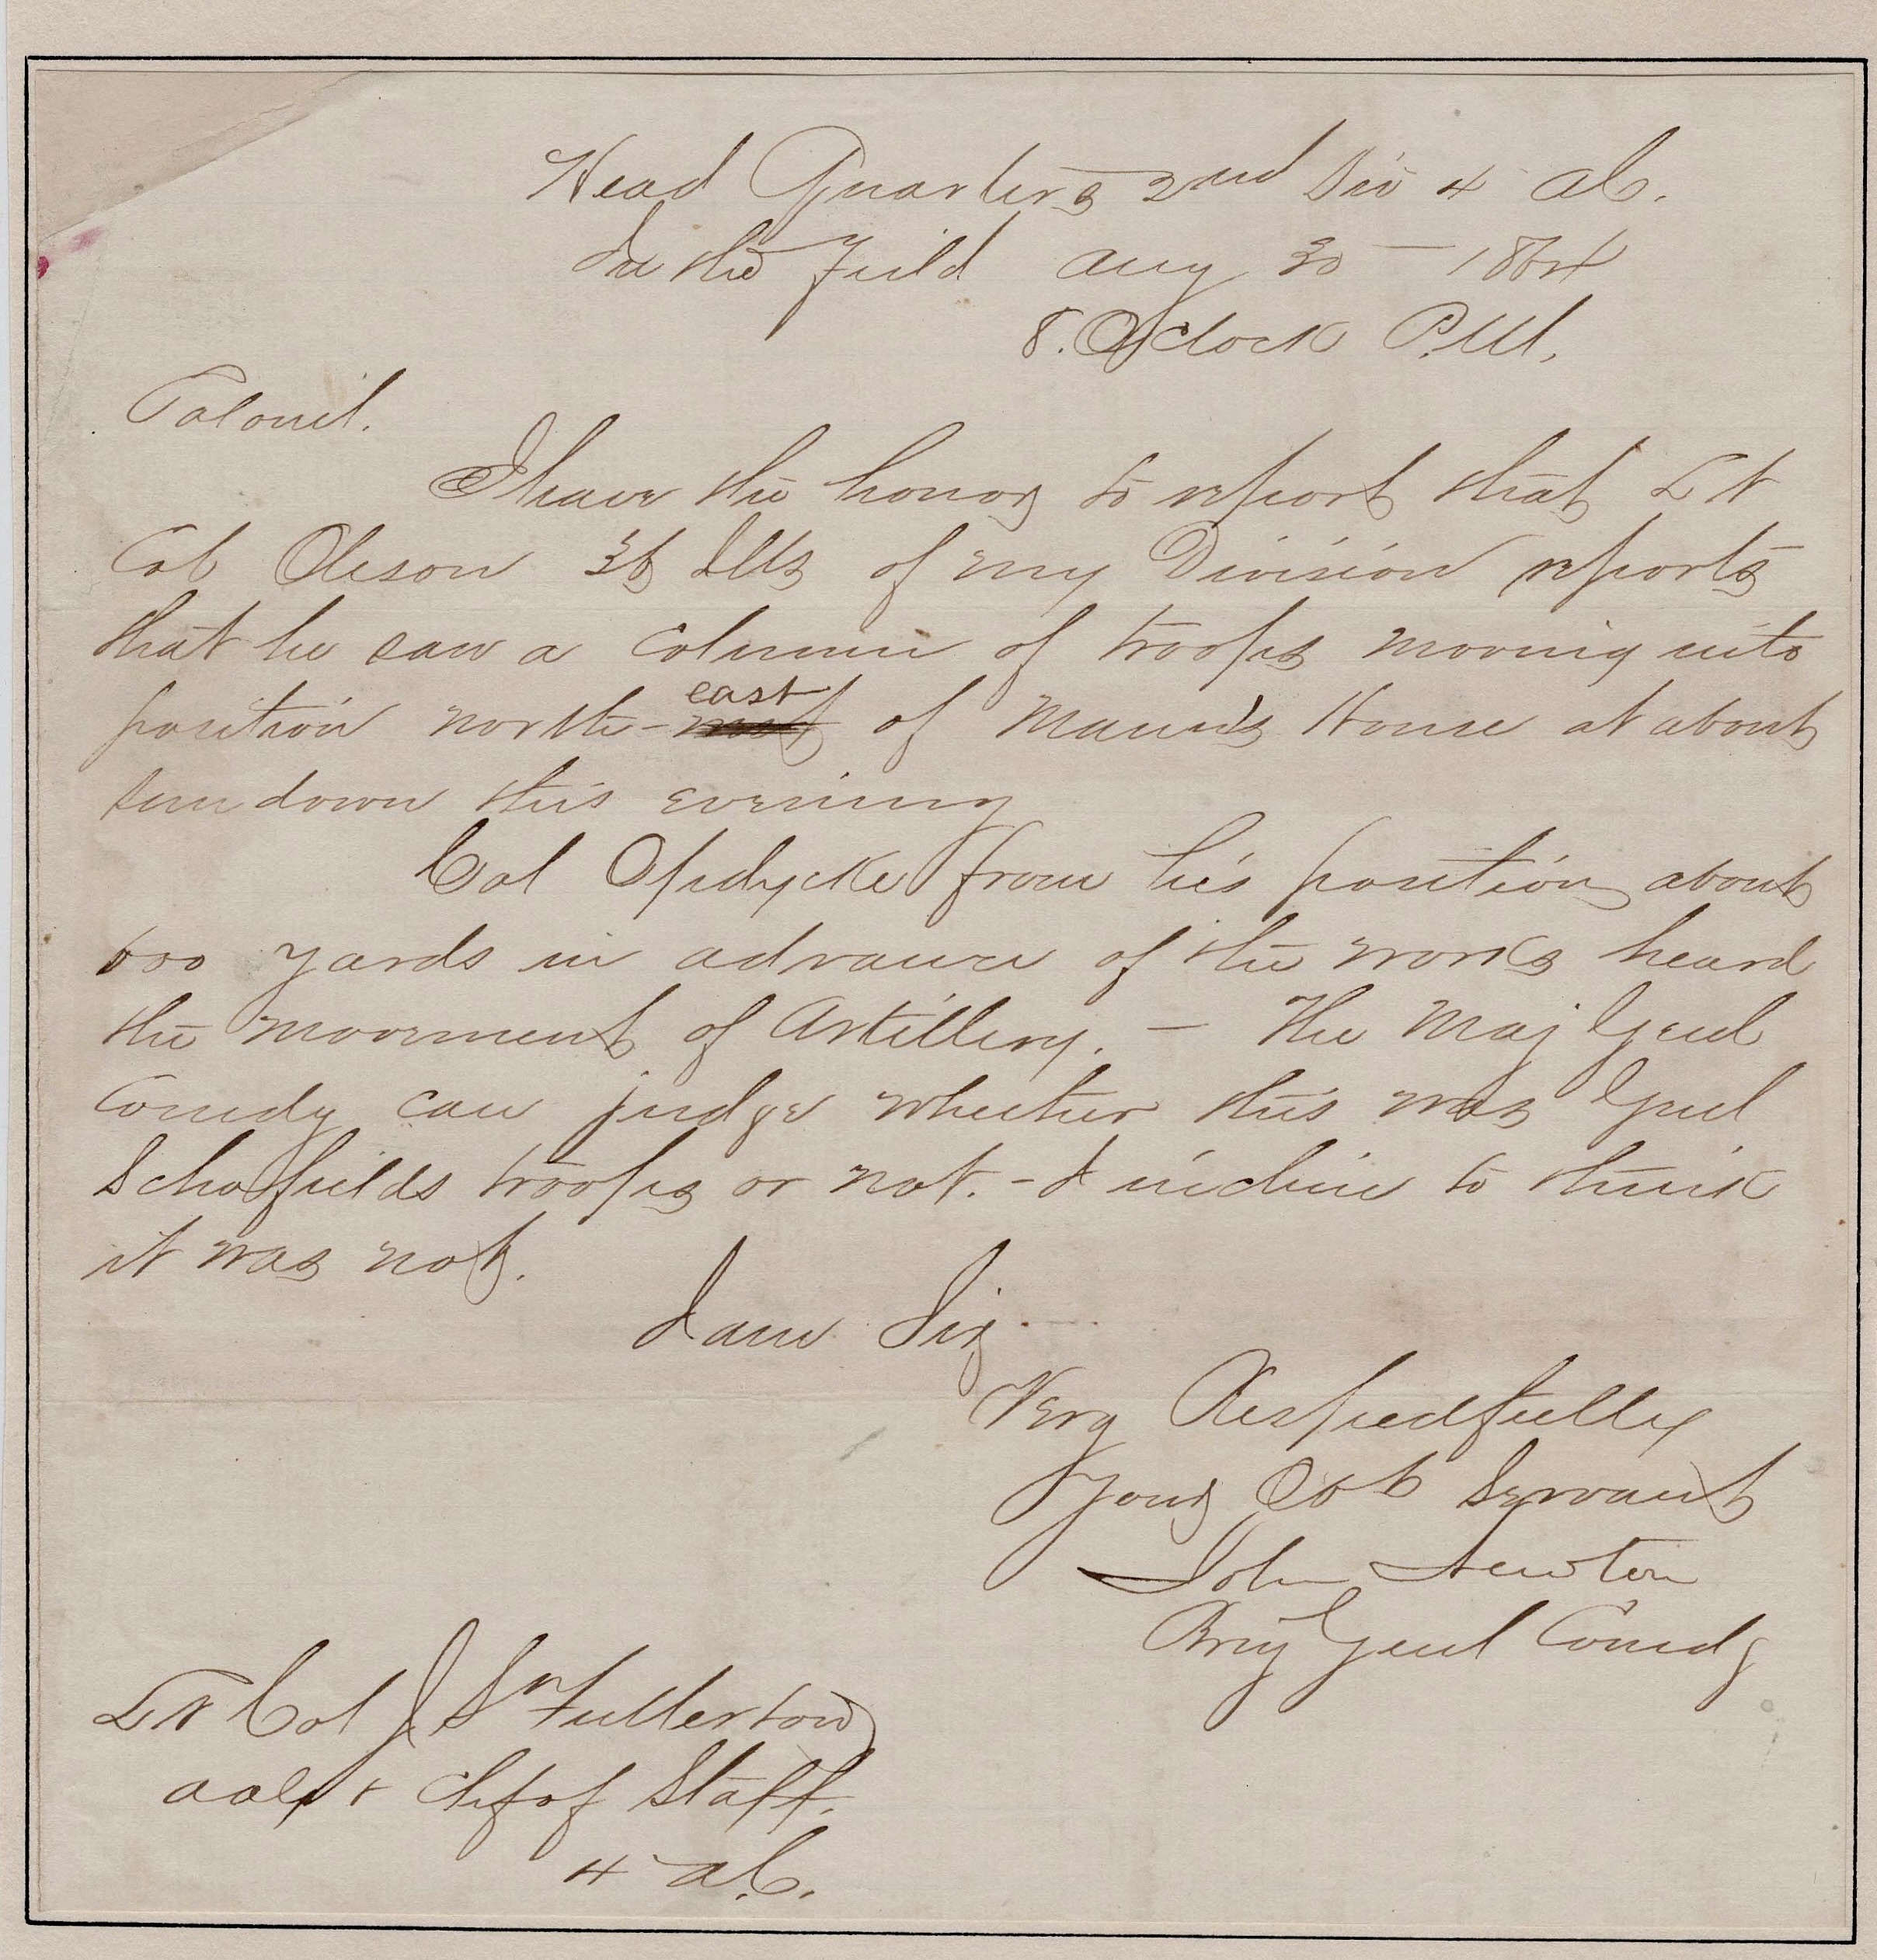 Head Quarters 2nd Div 4 A.C.
In the Field Aug 30 — 1864
8. O'clock P.M.
Colonel.
I have the honor to report that Lt
Col Oleson 36 Ills of my Division reports
that he saw a column of troops moving into
position north-east of Mann's House at about
sun down this evening
Col Opdycke from his position about
600 yards in advance of the works heard
the movement of Artillery. — The Maj Genl
Comdg can judge whether this was Genl
Schofields troops or not. - I incline to think
it was not.
I am Sir
Very Respectfully
Your Obt Servant
John Newton
Brig Genl Comdg
Lt Col J S Fullerton
AAG & Chf of Staff.
4 A.C.